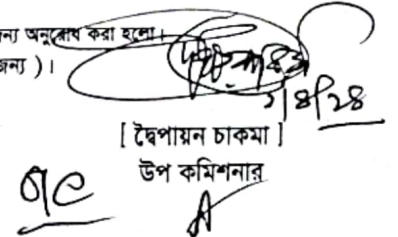 ন্য অনুরোধ করা হলো।
জন্য )।
২/৪/২৪
[ দ্বৈপায়ন চাকমা ]
উপ কমিশনার